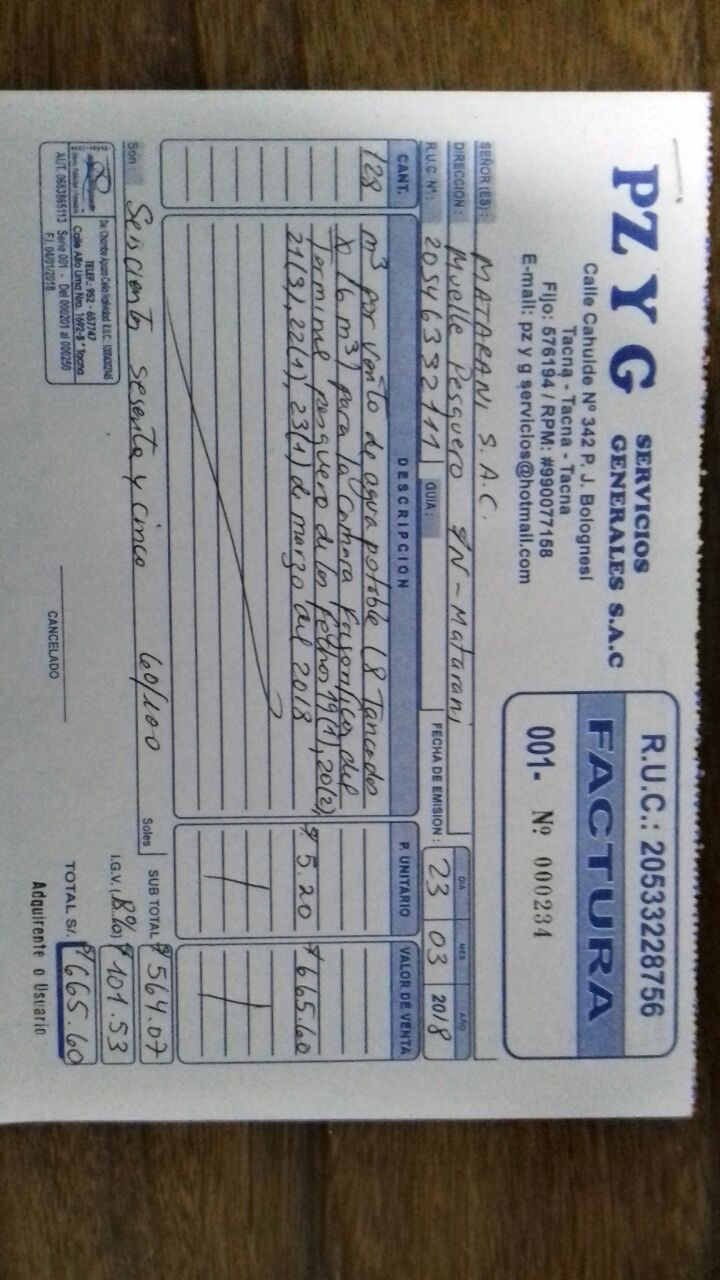 PZ Y G SERVICIOS
GENERALES S.A.C
Calle Cahuide Nº 342 P. J. Bolognesi
Tacna - Tacna - Tacna
Fijo: 576194 / RPM: #990077158
E-mail: pz y g servicios@hotmail.com
R.U.C.: 20533228756
FACTURA
001- Nº 000234
SEÑOR (ES): MATARANI S.A.C.
DIRECCIÓN: Muelle Pesquero S/N - Matarani
R.U.C. Nº: 20546332111 GUIA:
FECHA DE EMISIÓN: DIA MES AÑO
23 03 2018
CANT. DESCRIPCION P. UNITARIO VALOR DE VENTA
128 m³ por venta de agua potable (8 Tancadas
x 16 m³) para la Camara Frigorifica del
Terminal pesquero de las fechas 19(1), 20(2), $ 5.20 $ 665.60
21(3), 22(1), 23(1) de marzo del 2018
Son: Seiscientos sesenta y cinco 60/100 Soles
SUB TOTAL $ 564.07
I.G.V. (18%) $ 101.53
TOTAL S/. $ 665.60
TELEF.: 952 - 657747
Calle Alto Lima Nro. 1692-B * Tacna
AUT. 0683865113 Serie 001 - Del 000201 al 000250
F.I. 04/01/2018
CANCELADO
Adquirente o Usuario